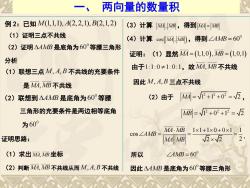 一、 两向量的数量积
例 2：已知 M(1,1,1), A(2,2,1), B(2,1,2)
（1）证明三点不共线
（2）证明 △AMB 是底角为 60° 等腰三角形
分析
（1）联想三点 M, A, B 不共线的充要条件
是 MA, MB 不共线
（2）联想到 △AMB 是底角为 60° 等腰
三角形的充要条件是两边相等底角
为 60°
证明思路：
（1）求出 MA, MB 坐标
（2）判断 MA, MB 不共线从而 M, A, B 不共线
（3）计算 |MA|, |MB|，得到 |MA| = |MB|
（4）计算 cos∠AMB，得到 ∠AMB = 60°
证明：（1）显然 MA = (1,1,0), MB = (1,0,1)
由于 1:1:0 ≠ 1:0:1，故 MA, MB 不共线
因此 M, A, B 三点不共线
（2）由于 |MA| = √1² + 1² + 0² = √2，
|MB| = √1² + 0² + 1² = √2
cos∠AMB = MA · MB / |MA||MB| = 1×1 + 1×0 + 0×1 / √2√2 = 1/2，
所以 ∠AMB = 60°
因此 △AMB 是底角为 60° 等腰三角形